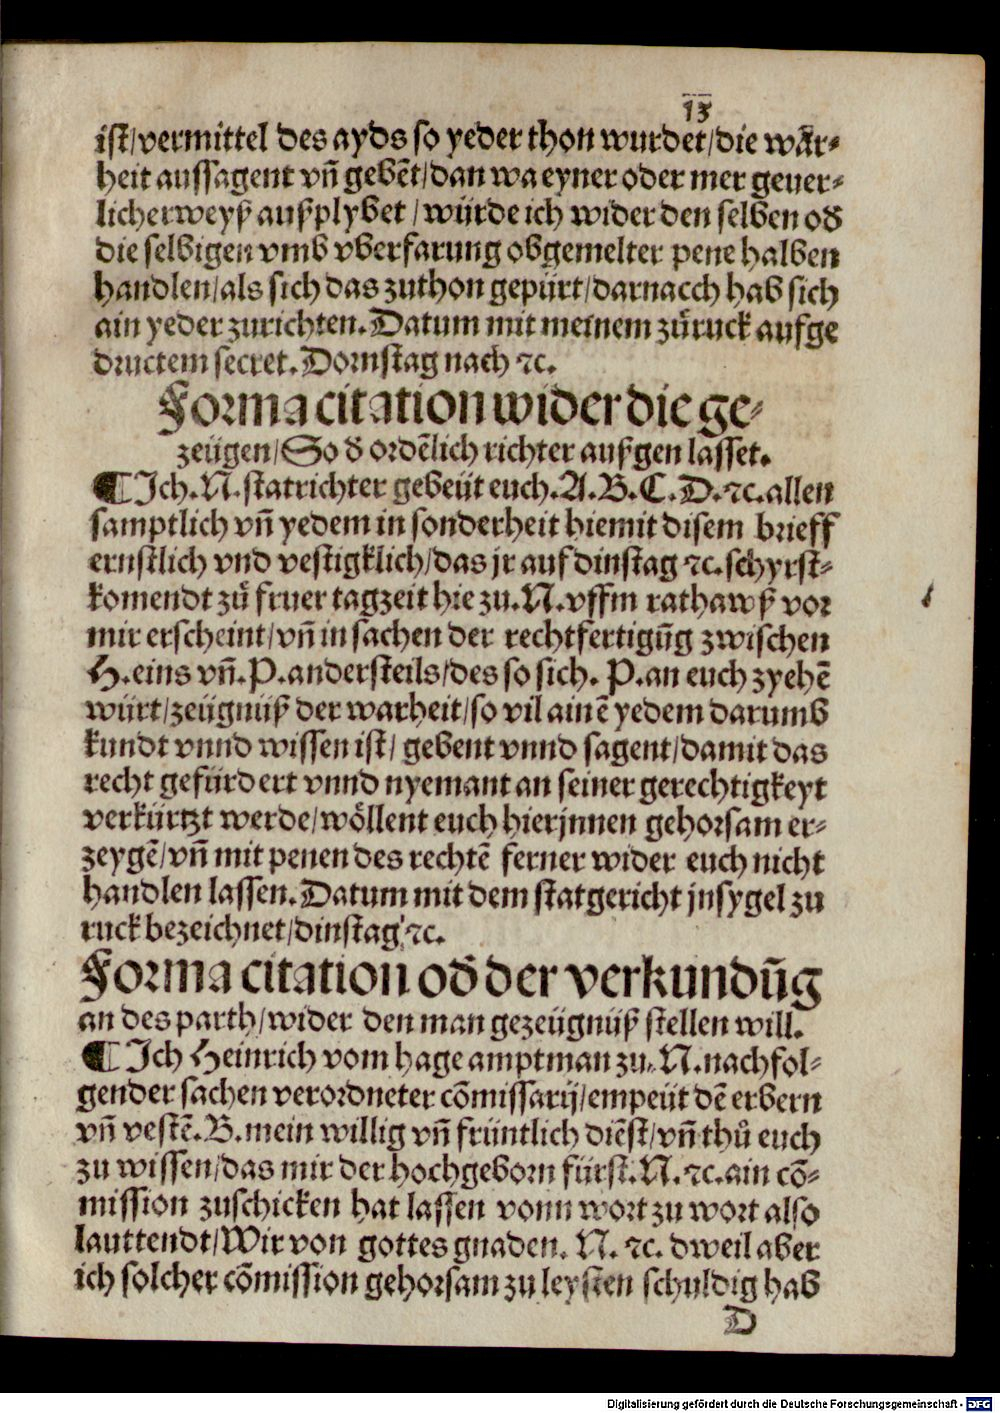 13
ist/vermittel des ayds so yeder thon wurdet/die wår⸗
heit aussagent vn̄ gebēt/dan wa eyner oder mer geuer⸗
licherweyß außplybet/würde ich wider den selben od̕
die selbigen vmb vberfarung obgemelter pene halben
handlen/als sich das zuthon gepürt/darnacch hab sich
ain yeder zurichten. Datum mit meinem zůruck aufge
dructem secret. Dornstag nach ⁊c.
Forma citation wider die ge⸗
zeügen/So d̕ ordēlich richter außgen lasset.
¶ Ich. N. statrichter gebeüt euch. A. B. C. D. ⁊c. allen
samptlich vn̄ yedem in sonderheit hiemit disem brieff
ernstlich vnd vestigklich/das jr auf dinstag ⁊c. schyrst⸗
komendt zů fruer tagzeit hie zu. N. vffm rathawß vor
mir erscheint/vn̄ in sachen der rechtfertigūg zwischen
H. eins vn̄. P. andersteils/des so sich. P. an euch zyehē
würt/zeügnüß der warheit/so vil ainē yedem darumb
kundt vnnd wissen ist/ gebent vnnd sagent/damit das
recht gefürdert vnnd nyemant an seiner gerechtigkeyt
verkürtzt werde/wöllent euch hierjnnen gehorsam er⸗
zeygē/vn̄ mit penen des rechtē ferner wider euch nicht
handlen lassen. Datum mit dem statgericht jnsygel zu
ruck bezeichnet/dinstag ⁊c.
Forma citation od̕ der verkundūg
an des parth/wider den man gezeügnüß stellen will.
¶ Ich Heinrich vom hage amptman zu. N. nachfol⸗
gender sachen verordneter cōmissarij/empeüt dē erbern
vn̄ vestē. B. mein willig vn̄ früntlich diēst/vn̄ thů euch
zu wissen/das mir der hochgeborn fürst. N. ⁊c. ain cō⸗
mission zuschicken hat lassen vonn wort zu wort also
lauttendt/Wir von gottes gnaden. N. ⁊c. dweil aber
ich solcher cōmission gehorsam zu leysten schuldig hab
D
Digitalisierung gefördert durch die Deutsche Forschungsgemeinschaft - DFG